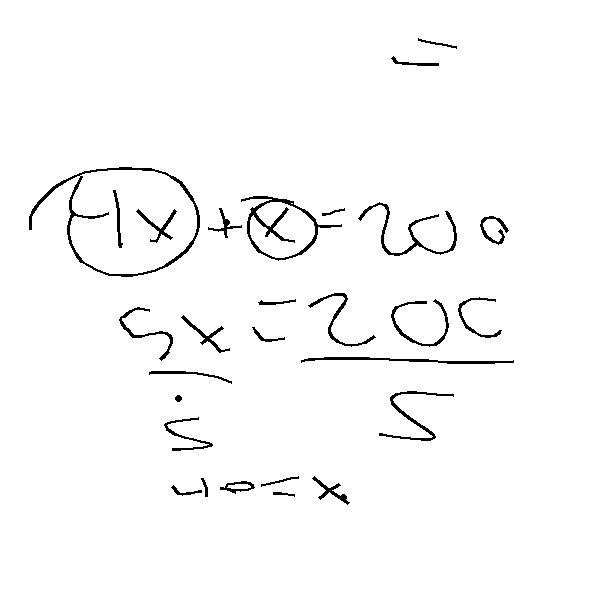 =
4x + x = 200
5x = 200
5 5
40 = x